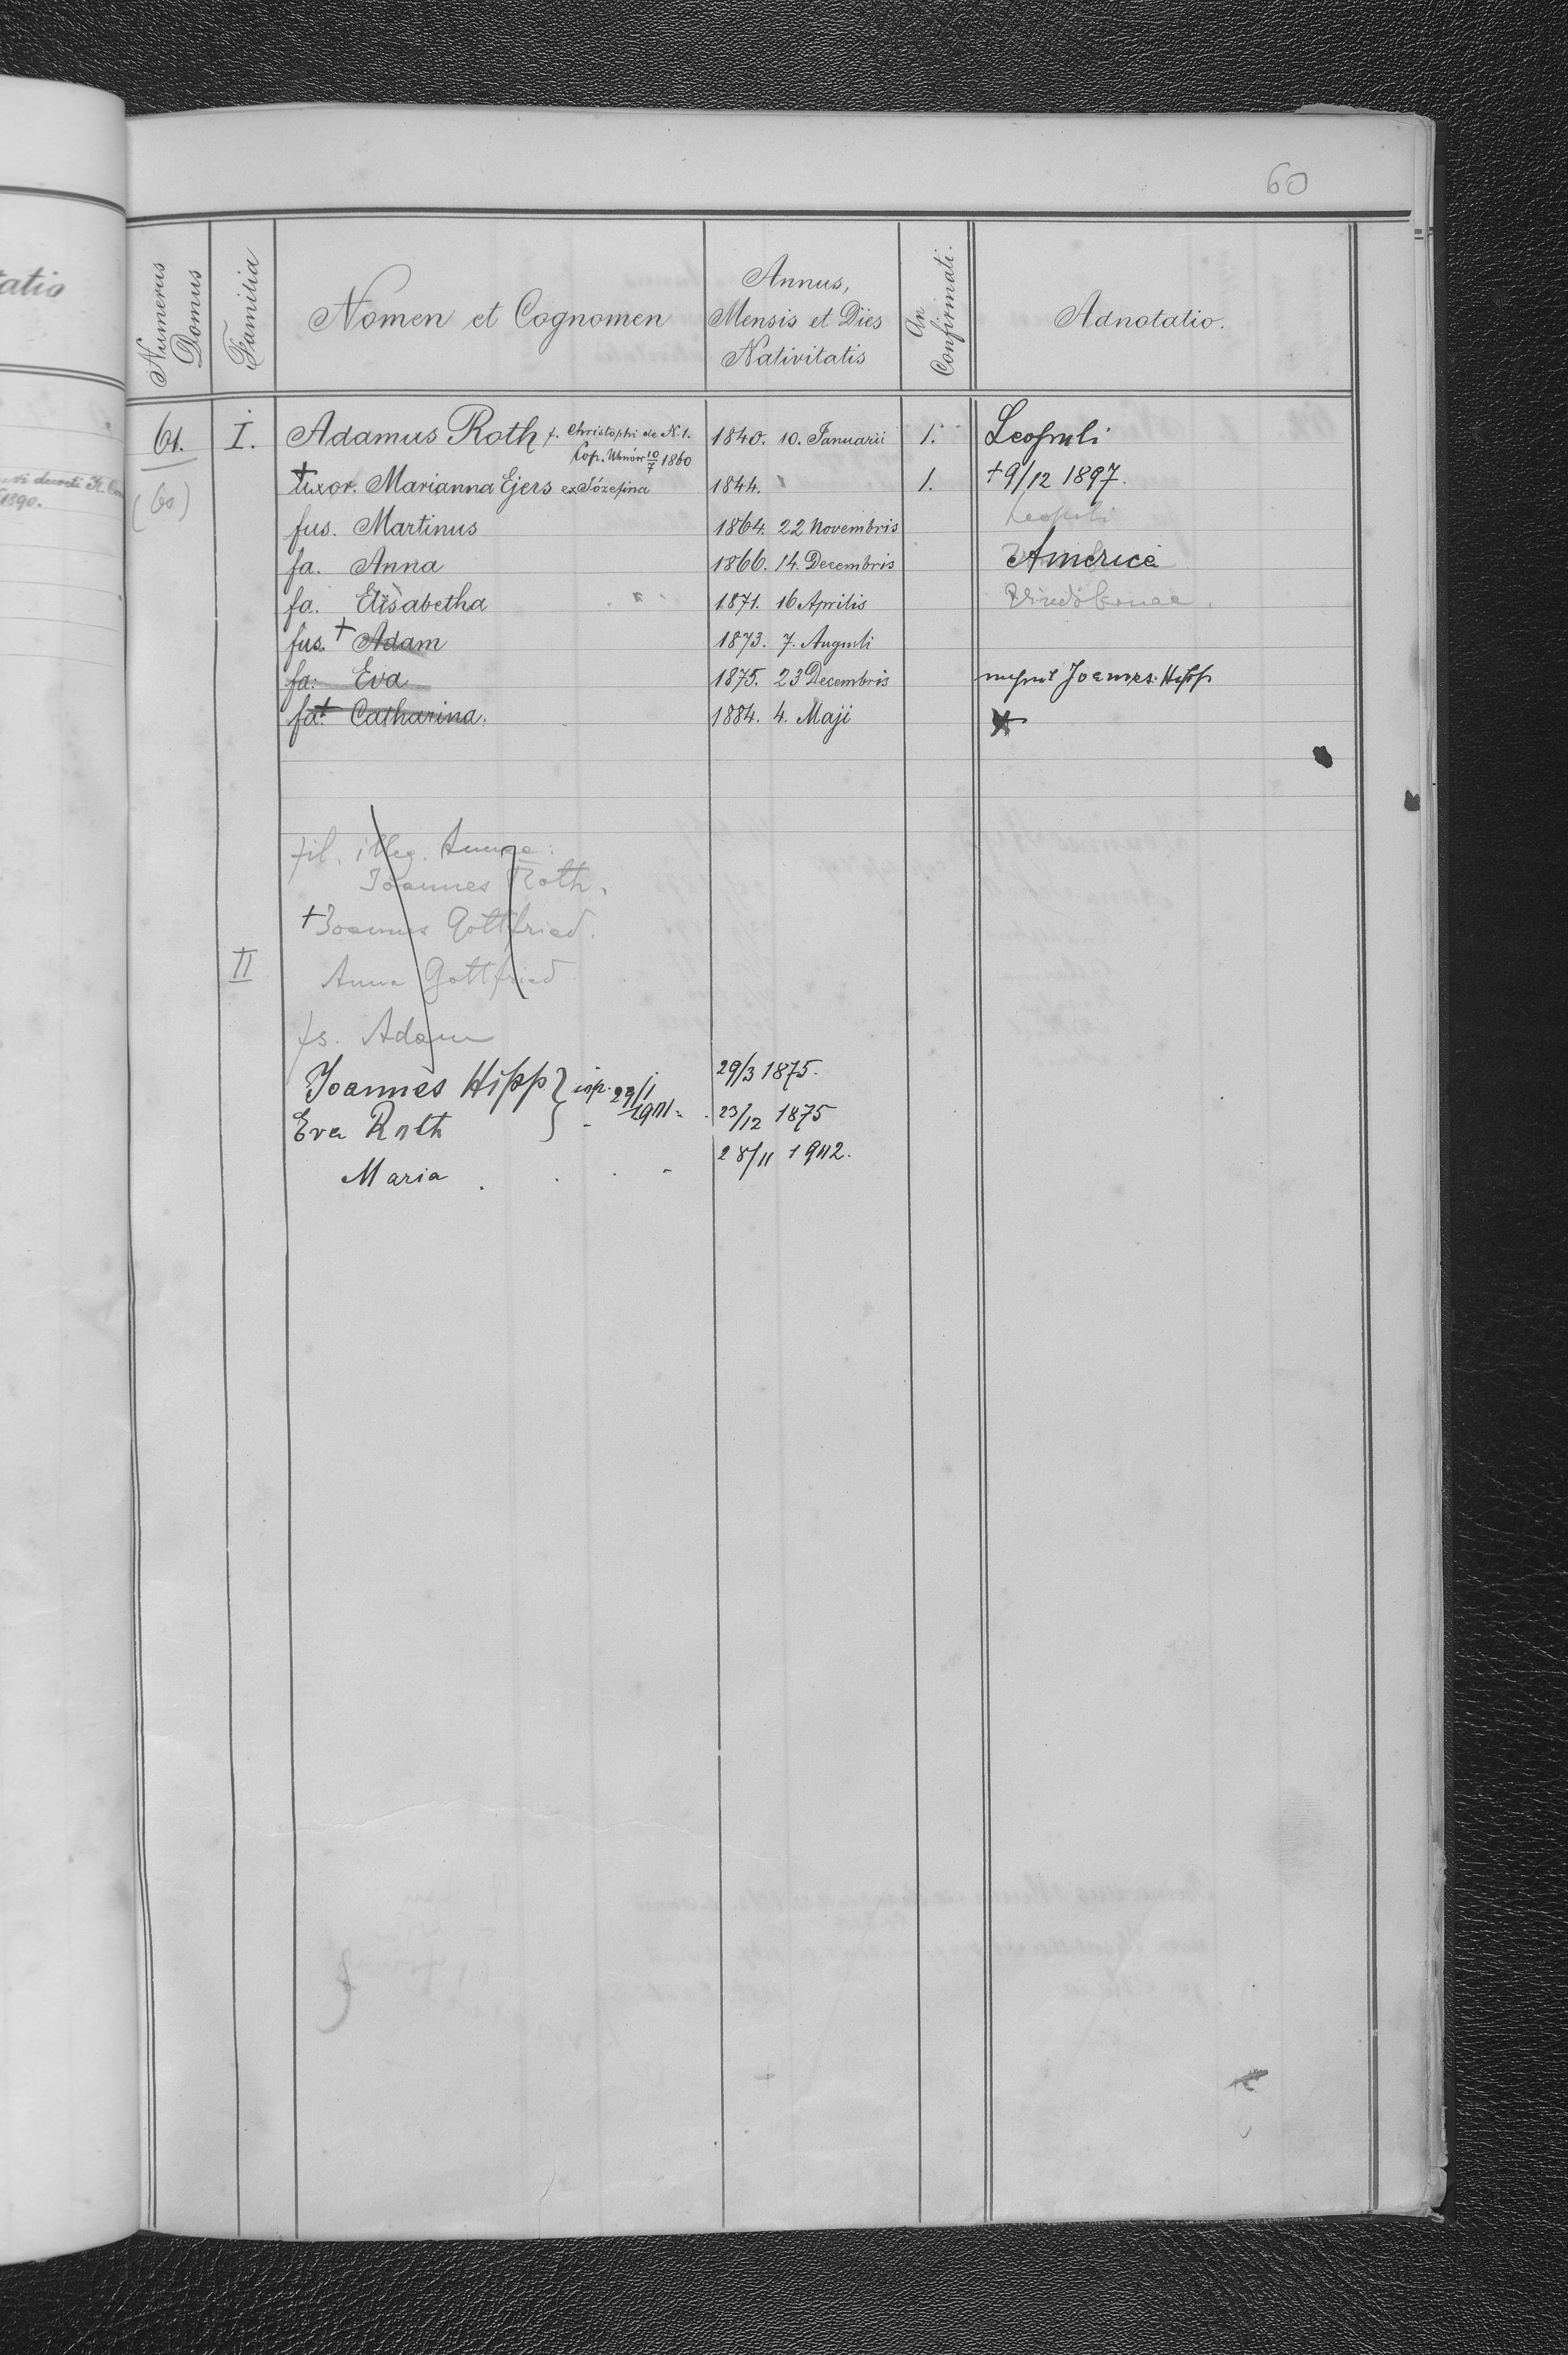 60
tatio
Numerus Domus
Familia
Nomen et Cognomen
Annus, Mensis et Dies Nativitatis
An Confirmati.
Adnotatio.
61. I. Adamus Roth f. Christophi de N. 1. 1840. 10. Januarii 1. Leopoli
Cop. Uhnów 10/7 1860
(60) † uxor. Marianna Ejers ex Józefina 1844. 1. † 9/12 1897.
1890.
fus. Martinus 1864. 22 Novembris Leopoli
fa. Anna 1866. 14. Decembris America
fa. Elisabetha 1871. 16 Aprilis Vindobonae.
fus. † Adam 1873. 7. Augusti
fa: Eva 1875. 23 Decembris nupsit Joannes Hipp
fa † Catharina. 1884. 4. Maji
fil. illeg. Annae:
Joannes Roth.
† Joannes Gottfried.
II Anna Gottfried
fs. Adam
Joannes Hipp } cop. 29/1 1901. 29/3 1875.
Eva Roth 23/12 1875
Maria 28/11 1902.